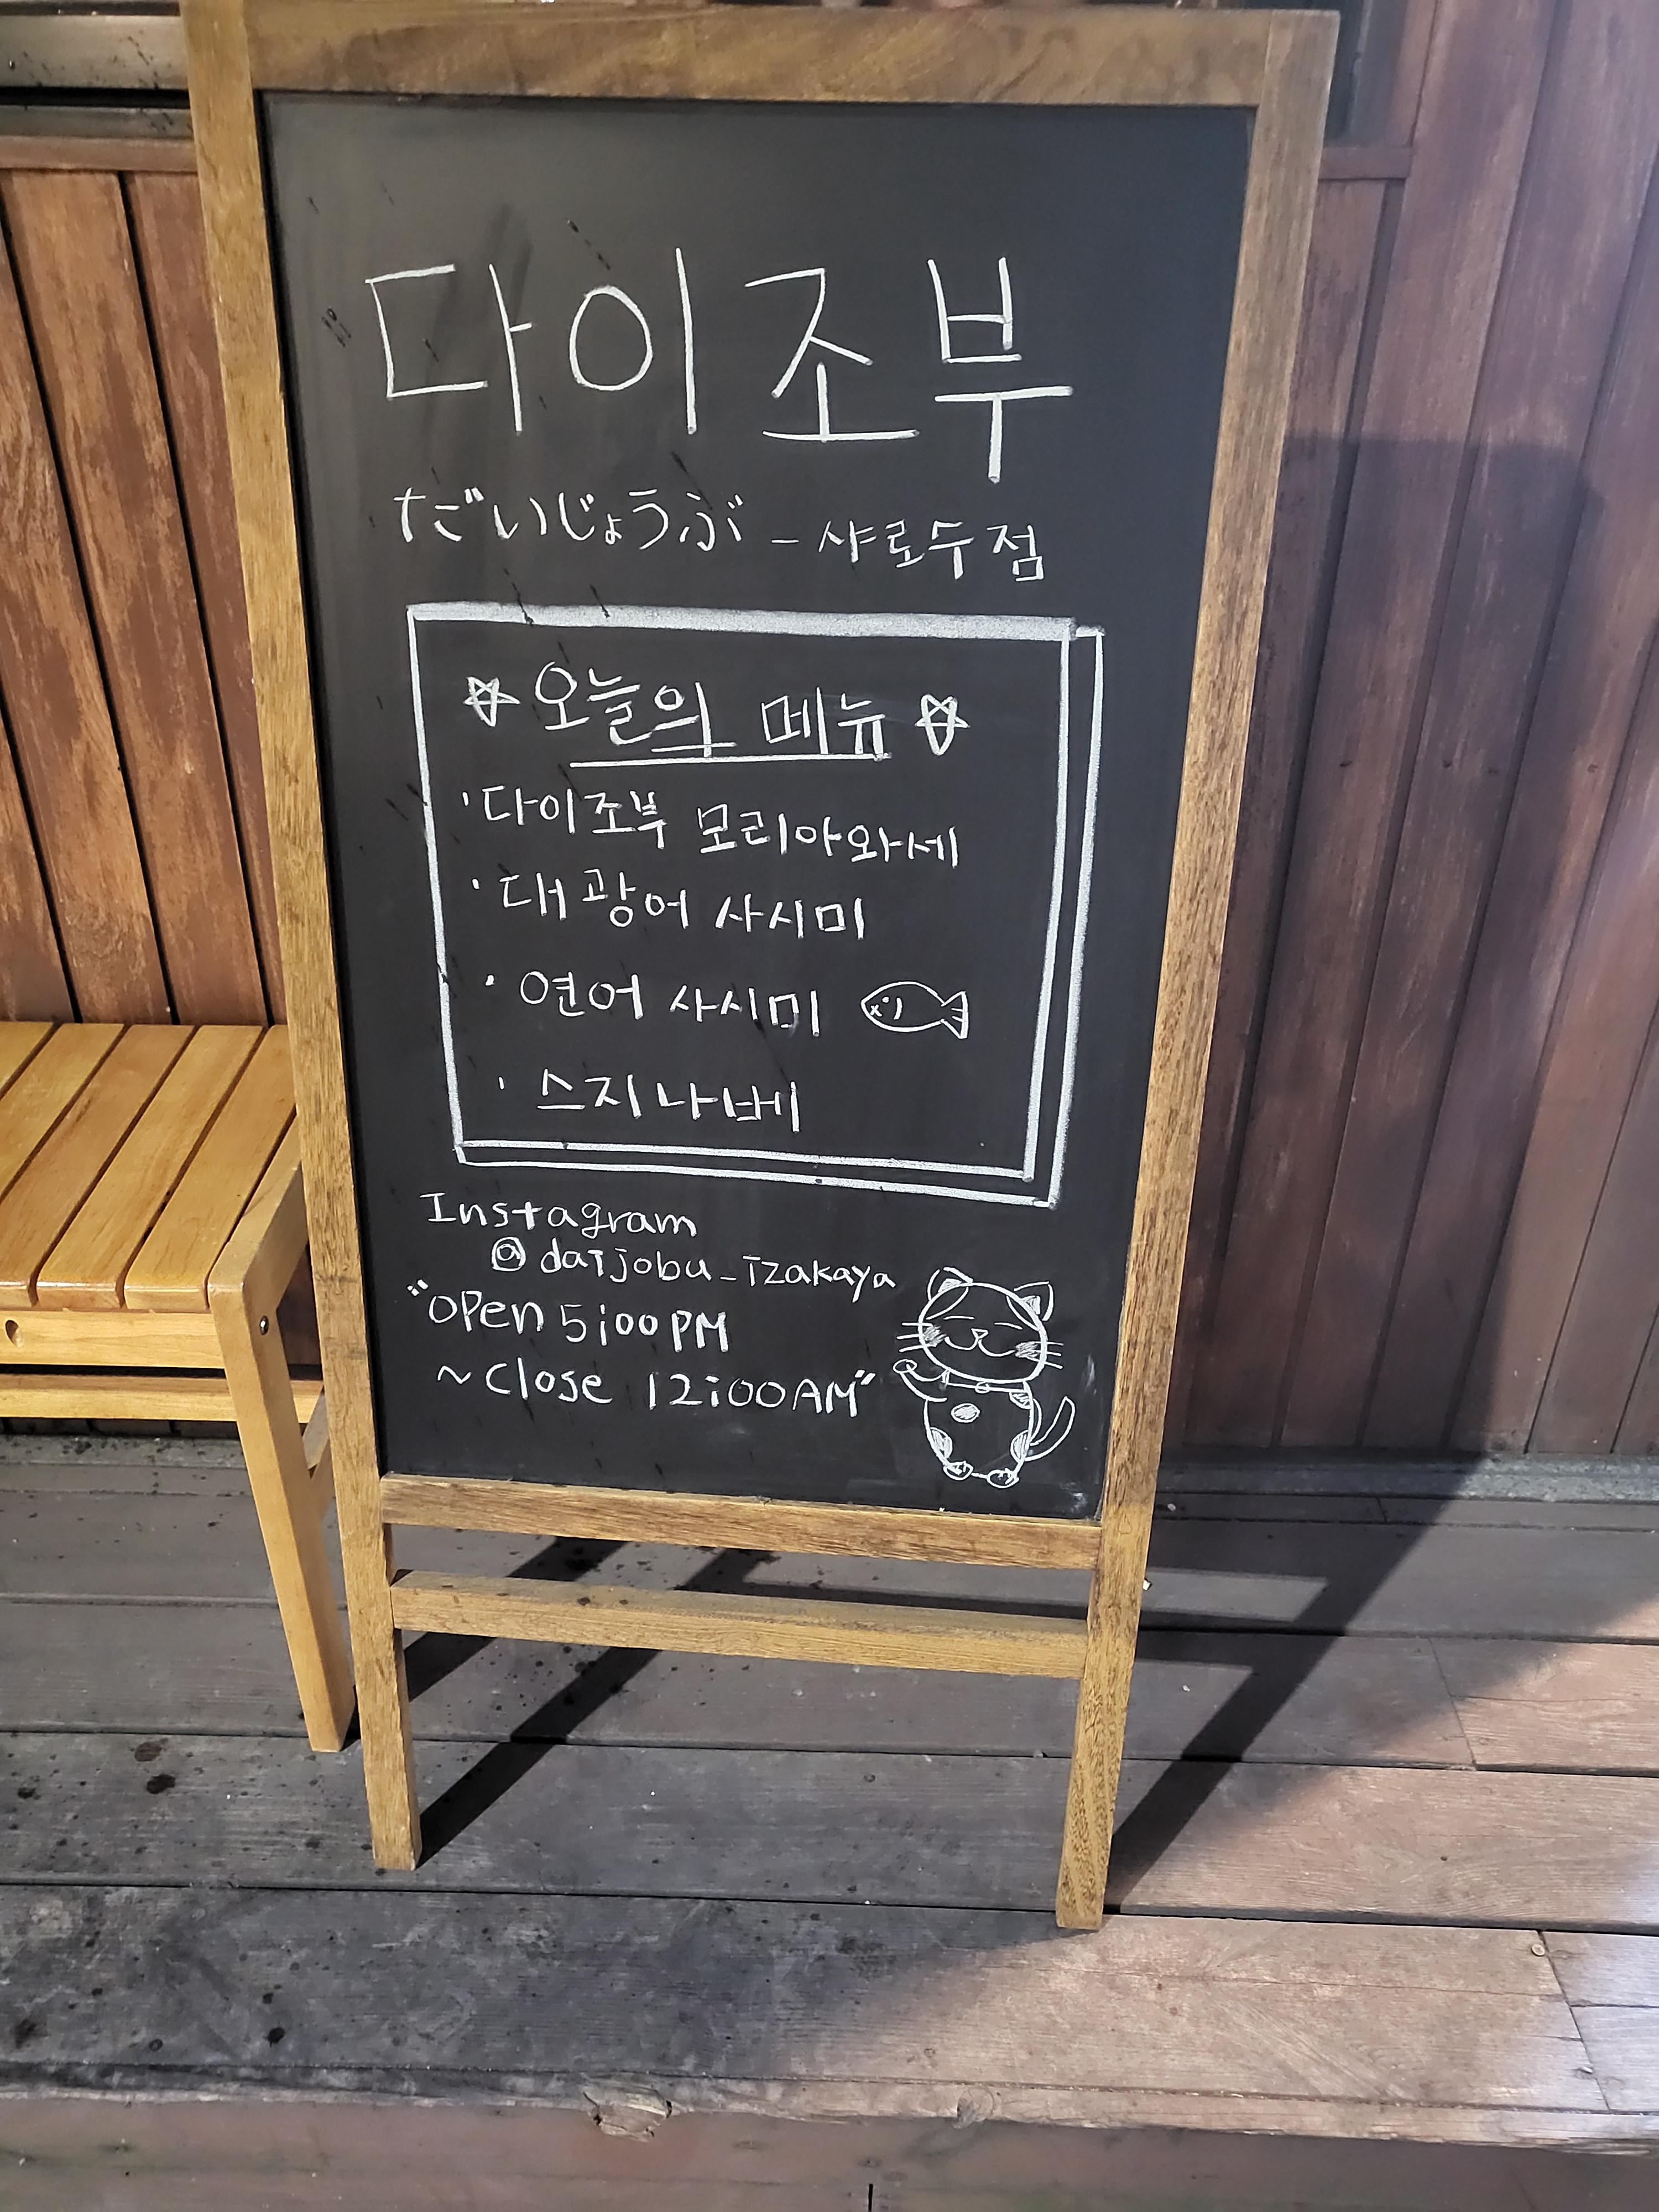 다이조부
だいじょうぶ - 샤로수점
☆ 오늘의 메뉴 ☆
· 다이조부 모리아와세
· 대광어 사시미
· 연어 사시미
· 스지나베
Instagram
@daijobu_izakaya
"open 5:00PM
~ close 12:00AM"